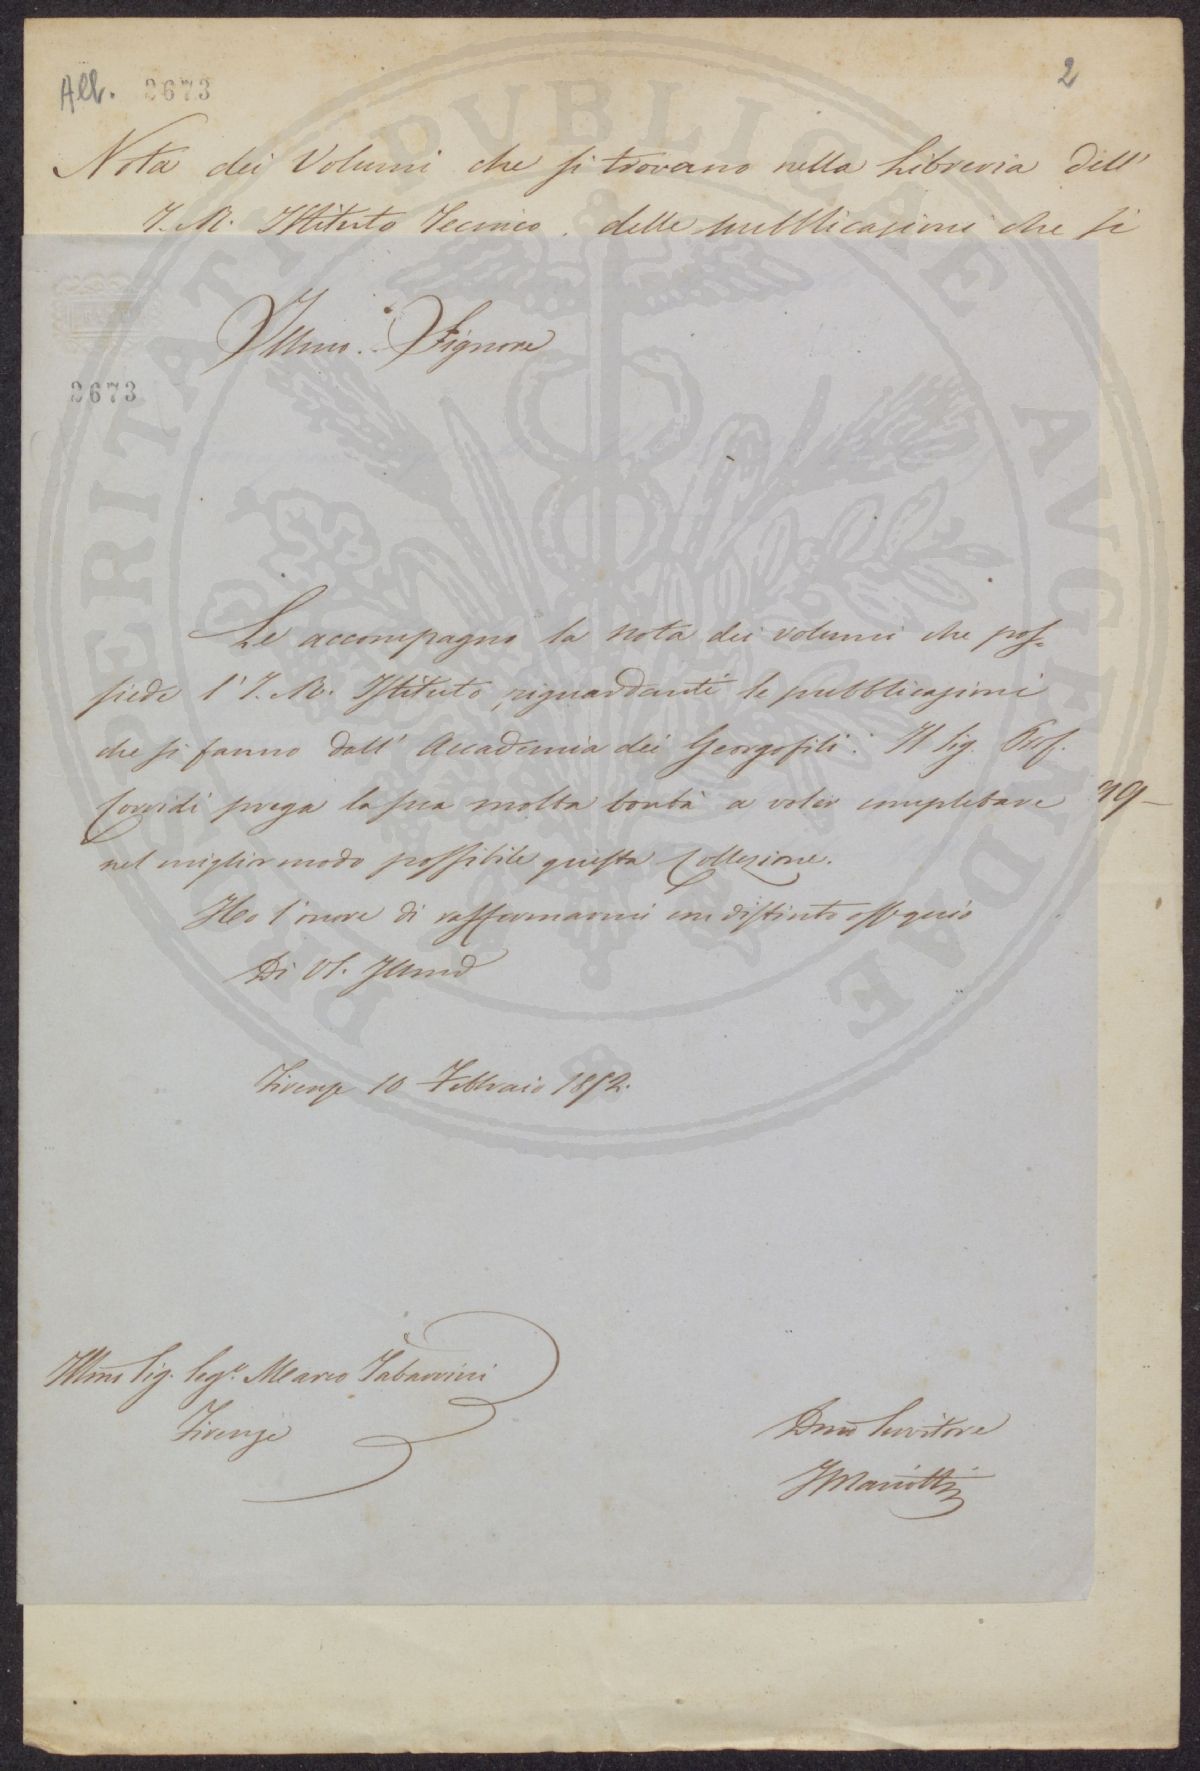 All. 2673
2
Nota dei Volumi che si trovano nella Libreria dell'
I. R. Istituto Tecnico, delle pubblicazioni che si
Illmo. Signore
2673
Le accompagno la nota dei volumi che pos=
siede l'I. R. Istituto, riguardanti le pubblicazioni
che si fanno dall' Accademia dei Georgofili. Il sig. Prof.
Corridi prega la sua molta bontà a voler completare
49
nel miglior modo possibile questa Collezione.
Ho l'onore di raffermarmi con distinto ossequio
Di VS. Illma
Firenze 10 Febbraio 1852.
Illmo Sig. Segr. Marco Tabarrini
Firenze
Dmo Servitore
Mariotti
PROSPERITATI PVBLICAE AVGENDAE